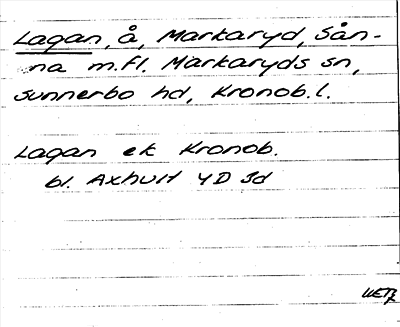 Lagan, å, Markaryd, Sån-
na m.fl. Markaryds sn,
Sunnerbo hd, Kronob.l.
Lagan ek Kronob.
bl. Axhult 4D Id